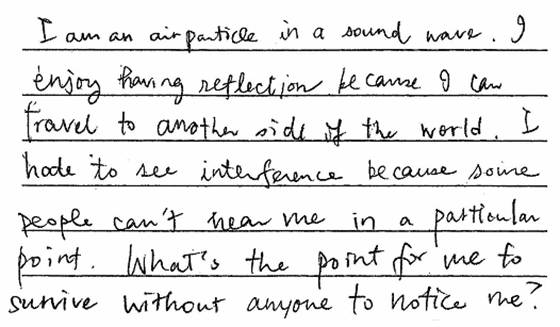 I am an air particle in a sound wave. I
enjoy having reflection because I can
travel to another side of the world. I
hate to see interference because some
people can't hear me in a particular
point. What's the point for me to
survive without anyone to notice me?